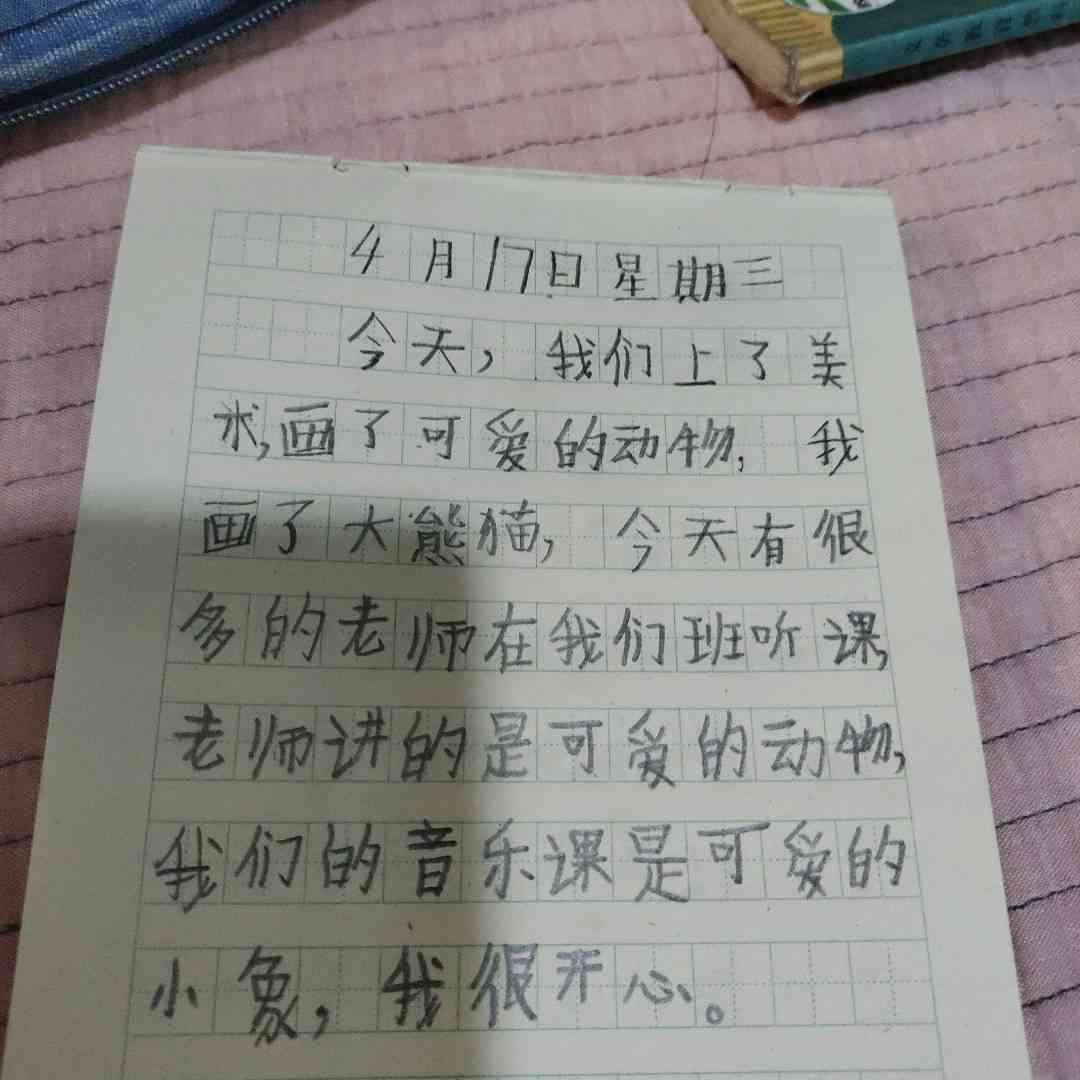 4月17日星期三
今天，我们上了美
术，画了可爱的动物，我
画了大熊猫，今天有很
多的老师在我们班听课，
老师讲的是可爱的动物，
我们的音乐课是可爱的
小象，我很开心。